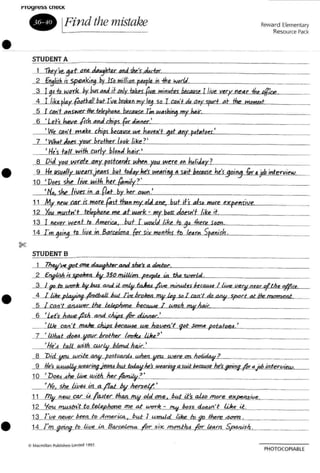 Progress check
36-40 Find the mistake
Reward Elementary
Resource Pack
STUDENT A
1 They've got one daughter and she's doctor.
2 English is speaking by 350 million people in the world.
3 I go to work by bus and it only takes five minutes because I live very near the office.
4 I like play football but I've broken my leg so I can't do any sport at the moment.
5 I can't answer the telephone because I'm washing my hair.
6 'Let's have fish and chips for dinner.'
'We can't make chips because we haven't got any potatoes.'
7 'What does your brother look like?'
'He's tall with curly blond hair.'
8 Did you wrote any postcards when you were on holiday?
9 He usually wears jeans but today he's wearing a suit because he's going for a job interview.
10 'Does she live with her family?'
'No, she lives in a flat by her own.'
11 My new car is more fast than my old one, but it's also more expensive.
12 You mustn't telephone me at work - my boss doesn't like it.
13 I never went to America, but I would like to go there soon.
14 I'm going to live in Barcelona for six months to learn Spanish.
STUDENT B
1 They've got one daughter and she's a doctor.
2 English is spoken by 350 million people in the world.
3 I go to work by bus and it only takes five minutes because I live very near of the office.
4 I like playing football but I've broken my leg so I can't do any sport at the moment.
5 I can't answer the telephone because I wash my hair.
6 'Let's have fish and chips for dinner.'
'We can't make chips because we haven't got some potatoes.'
7 'What does your brother looks like?'
'He's tall with curly blond hair.'
8 Did you write any postcards when you were on holiday?
9 He's usually wearing jeans but today he's wearing a suit because he's going for a job interview.
10 'Does she live with her family?'
'No, she lives in a flat by herself.'
11 My new car is faster than my old one, but it's also more expensive.
12 You mustn't to telephone me at work - my boss doesn't like it.
13 I've never been to America, but I would like to go there soon.
14 I'm going to live in Barcelona for six months for learn Spanish.
© Macmillan Publishers Limited 1997.
PHOTOCOPIABLE